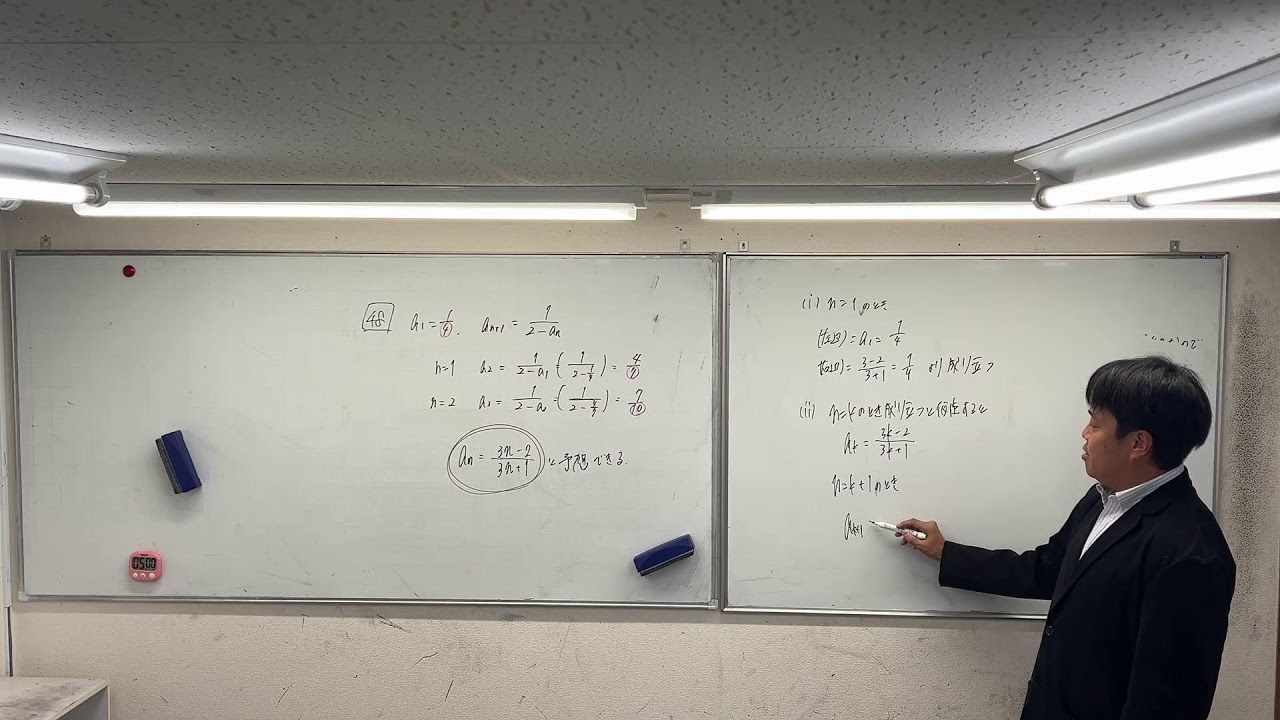 48 a₁ = 1/4. aₙ₊₁ = 1/(2-aₙ)
n=1 a₂ = 1/(2-a₁) = (1/(2-1/4)) = 4/7
n=2 a₃ = 1/(2-a₂) = (1/(2-4/7)) = 7/10
aₙ = (3n-2)/(3n+1) と予想できる.
(i) n=1のとき
(左辺) = a₁ = 1/4
(右辺) = (3-2)/(3+1) = 1/4 より成り立つ
(ii) n=kのとき成り立つと仮定すると
aₖ = (3k-2)/(3k+1)
n=k+1のとき
aₖ₊₁
15:00